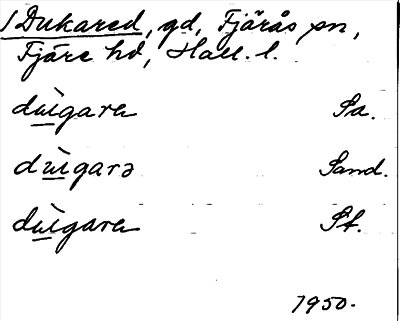 /Dukared, gd, Fjärås sn,
Fjäre hd, Hall. l.
dùgara Sa.
dùgarə Sand.
dùgara St.
1950.